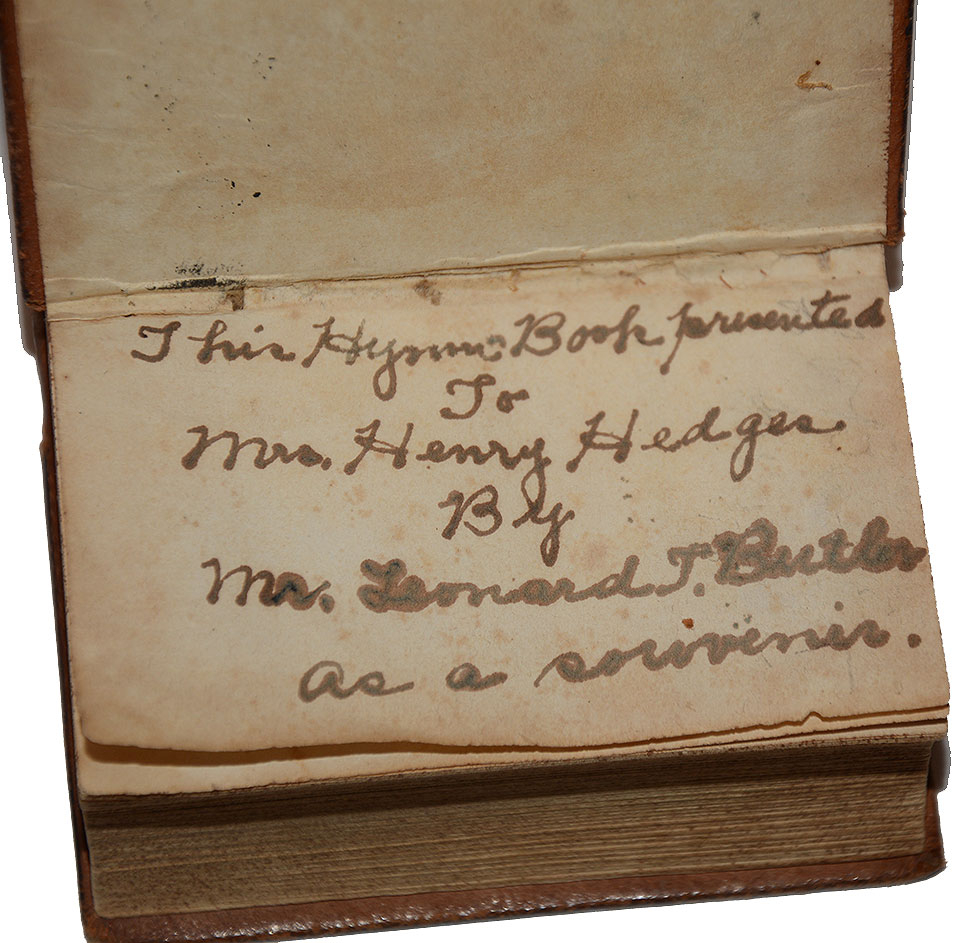 This Hymn Book presented
To
Mrs. Henry Hedges.
By
Mr. Leonard T. Butler
as a souvenir.